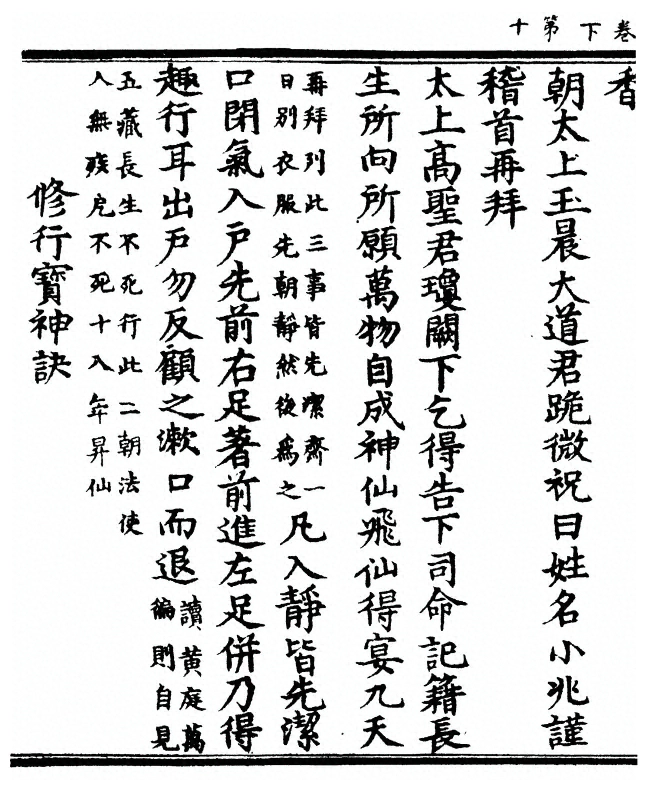 卷下第十
香
朝太上玉晨大道君跪微祝曰姓名小兆謹
稽首再拜
太上高聖君瓊闕下乞得告下司命記籍長
生所向所願萬物自成神仙飛仙得宴九天
再拜列此三事皆先潔齋一
日別衣服先朝靜然後爲之
凡入靜皆先潔
口閉氣入戶先前右足著前進左足併乃得
趣行耳出戶勿反顧之漱口而退
讀黃庭萬
徧則自見
五藏長生不死行此二朝法使
人無殘不死十八年昇仙
修行寶神訣